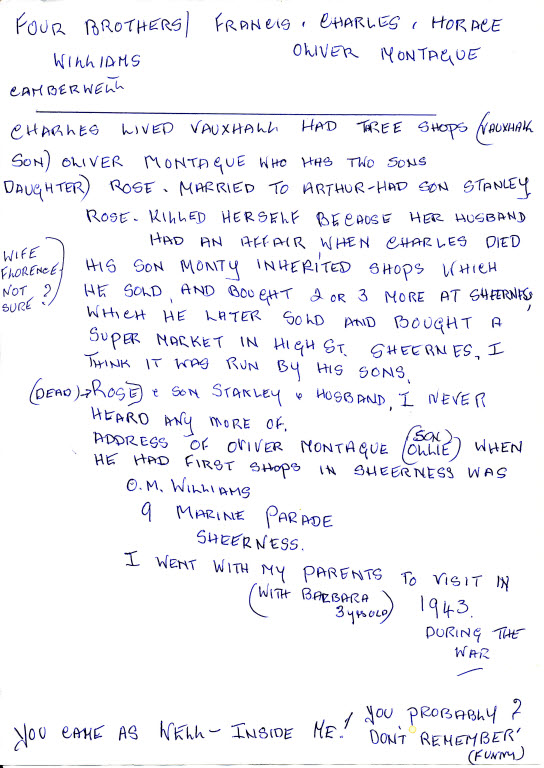 FOUR BROTHERS/ FRANCIS, CHARLES, HORACE
WILLIAMS OLIVER MONTAGUE
CAMBERWELL
CHARLES LIVED VAUXHALL HAD THREE SHOPS (VAUXHALL
SON) OLIVER MONTAGUE WHO HAS TWO SONS
DAUGHTER) ROSE. MARRIED TO ARTHUR-HAD SON STANLEY
ROSE. KILLED HERSELF BECAUSE HER HUSBAND
HAD AN AFFAIR, WHEN CHARLES DIED
WIFE FLORENCE. NOT SURE ?)
HIS SON MONTY INHERITED SHOPS WHICH
HE SOLD, AND BOUGHT 2 OR 3 MORE AT SHEERNESS,
WHICH HE LATER SOLD AND BOUGHT A
SUPER MARKET IN HIGH ST. SHEERNES, I
THINK IT WAS RUN BY HIS SONS.
(DEAD)→ROSE) & SON STANLEY & HUSBAND, I NEVER
HEARD ANY MORE OF.
ADDRESS OF OLIVER MONTAGUE (SON OLLIE) WHEN
HE HAD FIRST SHOPS IN SHEERNESS WAS
O.M. WILLIAMS
9 MARINE PARADE
SHEERNESS.
I WENT WITH MY PARENTS TO VISIT IN
(WITH BARBARA 3 YRS OLD) 1943.
DURING THE
WAR
YOU CAME AS WELL - INSIDE ME! YOU PROBABLY ?
DON'T REMEMBER!
(FUNNY)